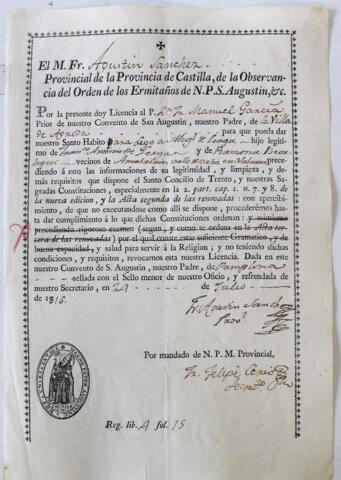 El M. Fr. Agustin Sanchez
Provincial de la Provincia de Castilla, de la Observan-
cia del Orden de los Ermitaños de N.P.S. Augustin, &c.
Por la presente doy Licencia al P. Fr. Manuel Garcia
Prior de nuestro Convento de San Augustin, nuestro Padre, de la Villa
de Agreda para que pueda dar
nuestro Santo Habito para lego a Mig.l de Loyga hijo legíti-
mo de Antonio de Loyga y de Ramona
vecinos de en Navarra prece-
diendo á esto las informaciones de su legitimidad, y limpieza, y de-
más requisitos que dispone el Santo Concilio de Trento, y nuestras Sa-
gradas Constituciones, especialmente en la 2. part. cap. 1. n. 7. y 8. de
la nueva edicion, y la Acta segunda de las renovadas: con apercibi-
miento, de que no executandose como allí se dispone, procederémos has-
ta dar cumplimiento á lo que dichas Constituciones ordenan: y asimismo
precediendo rigoroso examen (segun, y como se ordena en la Acta ter-
cera de las renovadas) por el qual conste estar suficiente Gramatico, y de
buena capacidad, y salud para servir á la Religion; y no teniendo dichas
condiciones, y requisitos, revocamos nuestra Licencia. Dada en este
nuestro Convento de S. Augustin, nuestro Padre, de Pamplona
sellada con el Sello menor de nuestro Oficio, y refrendada de
nuestro Secretario, en 24 de Julio de
de 1816.
Fr. Agustin Sanchez
Prov.l
Por mandado de N. P. M. Provincial,
Fr. Felipe
Secret.o
Reg. lib. 4 fol. 15